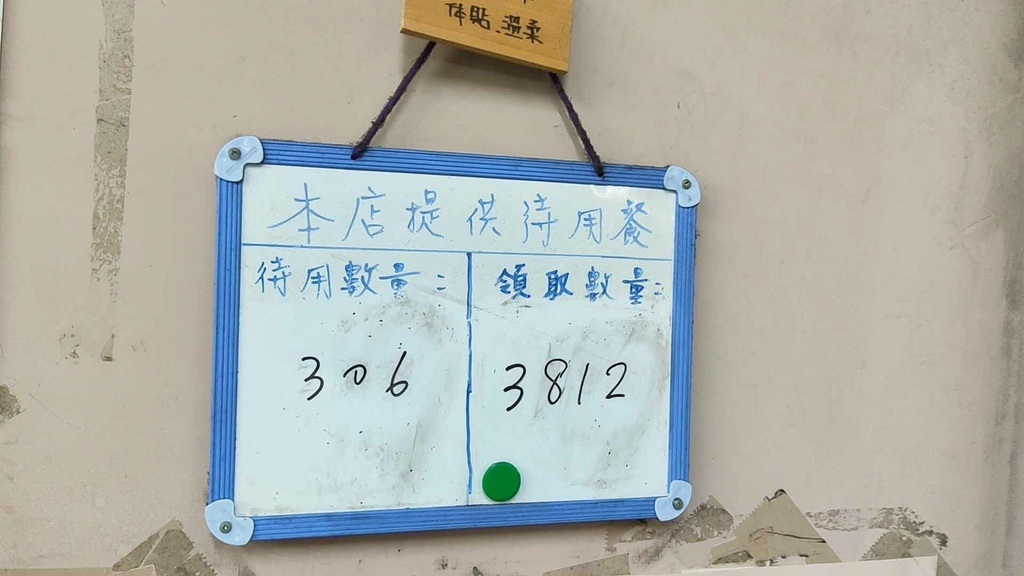 体貼.溫柔
本店提供待用餐
待用數量：
領取數量：
306
3812